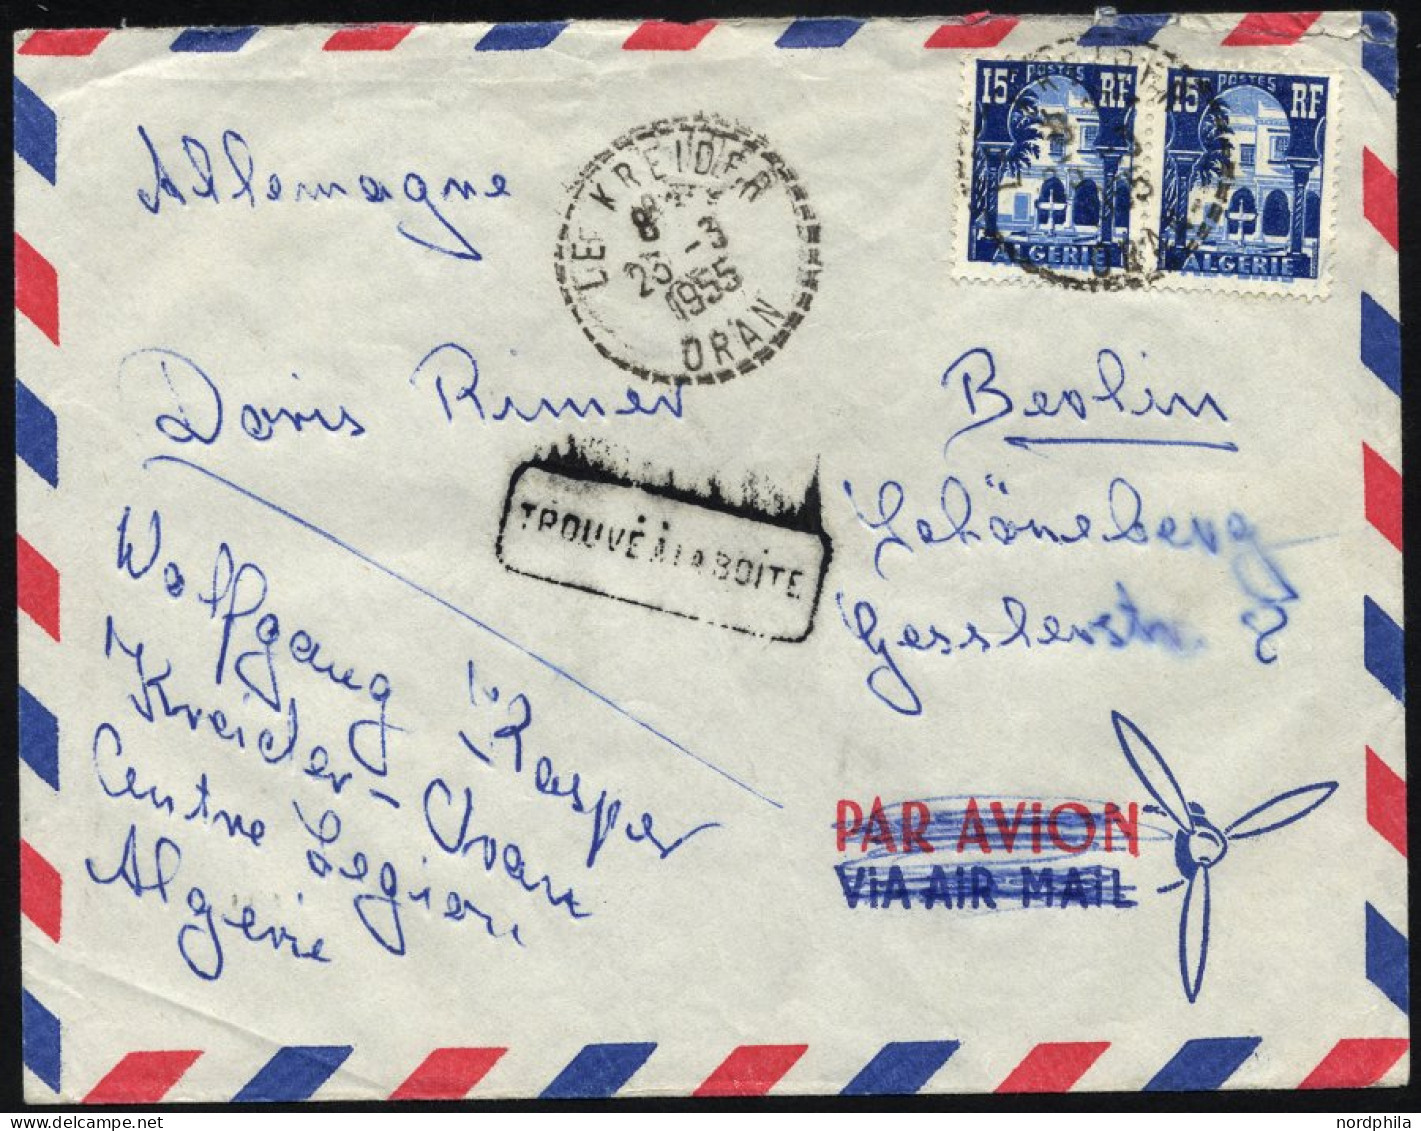 15F POSTES RF
ALGERIE
15F POSTES RF
ALGERIE
LE KREIDER
8H
23-3
1955
ORAN
Allemagne
Doris Rimer
Berlin
Schöneberg
Gesslerstr.
TROUVÉ À LA BOÎTE
Wolfgang Kasper
Kreider-Oran
Centre Legion
Algerie
PAR AVION
VIA AIR MAIL
nordphila